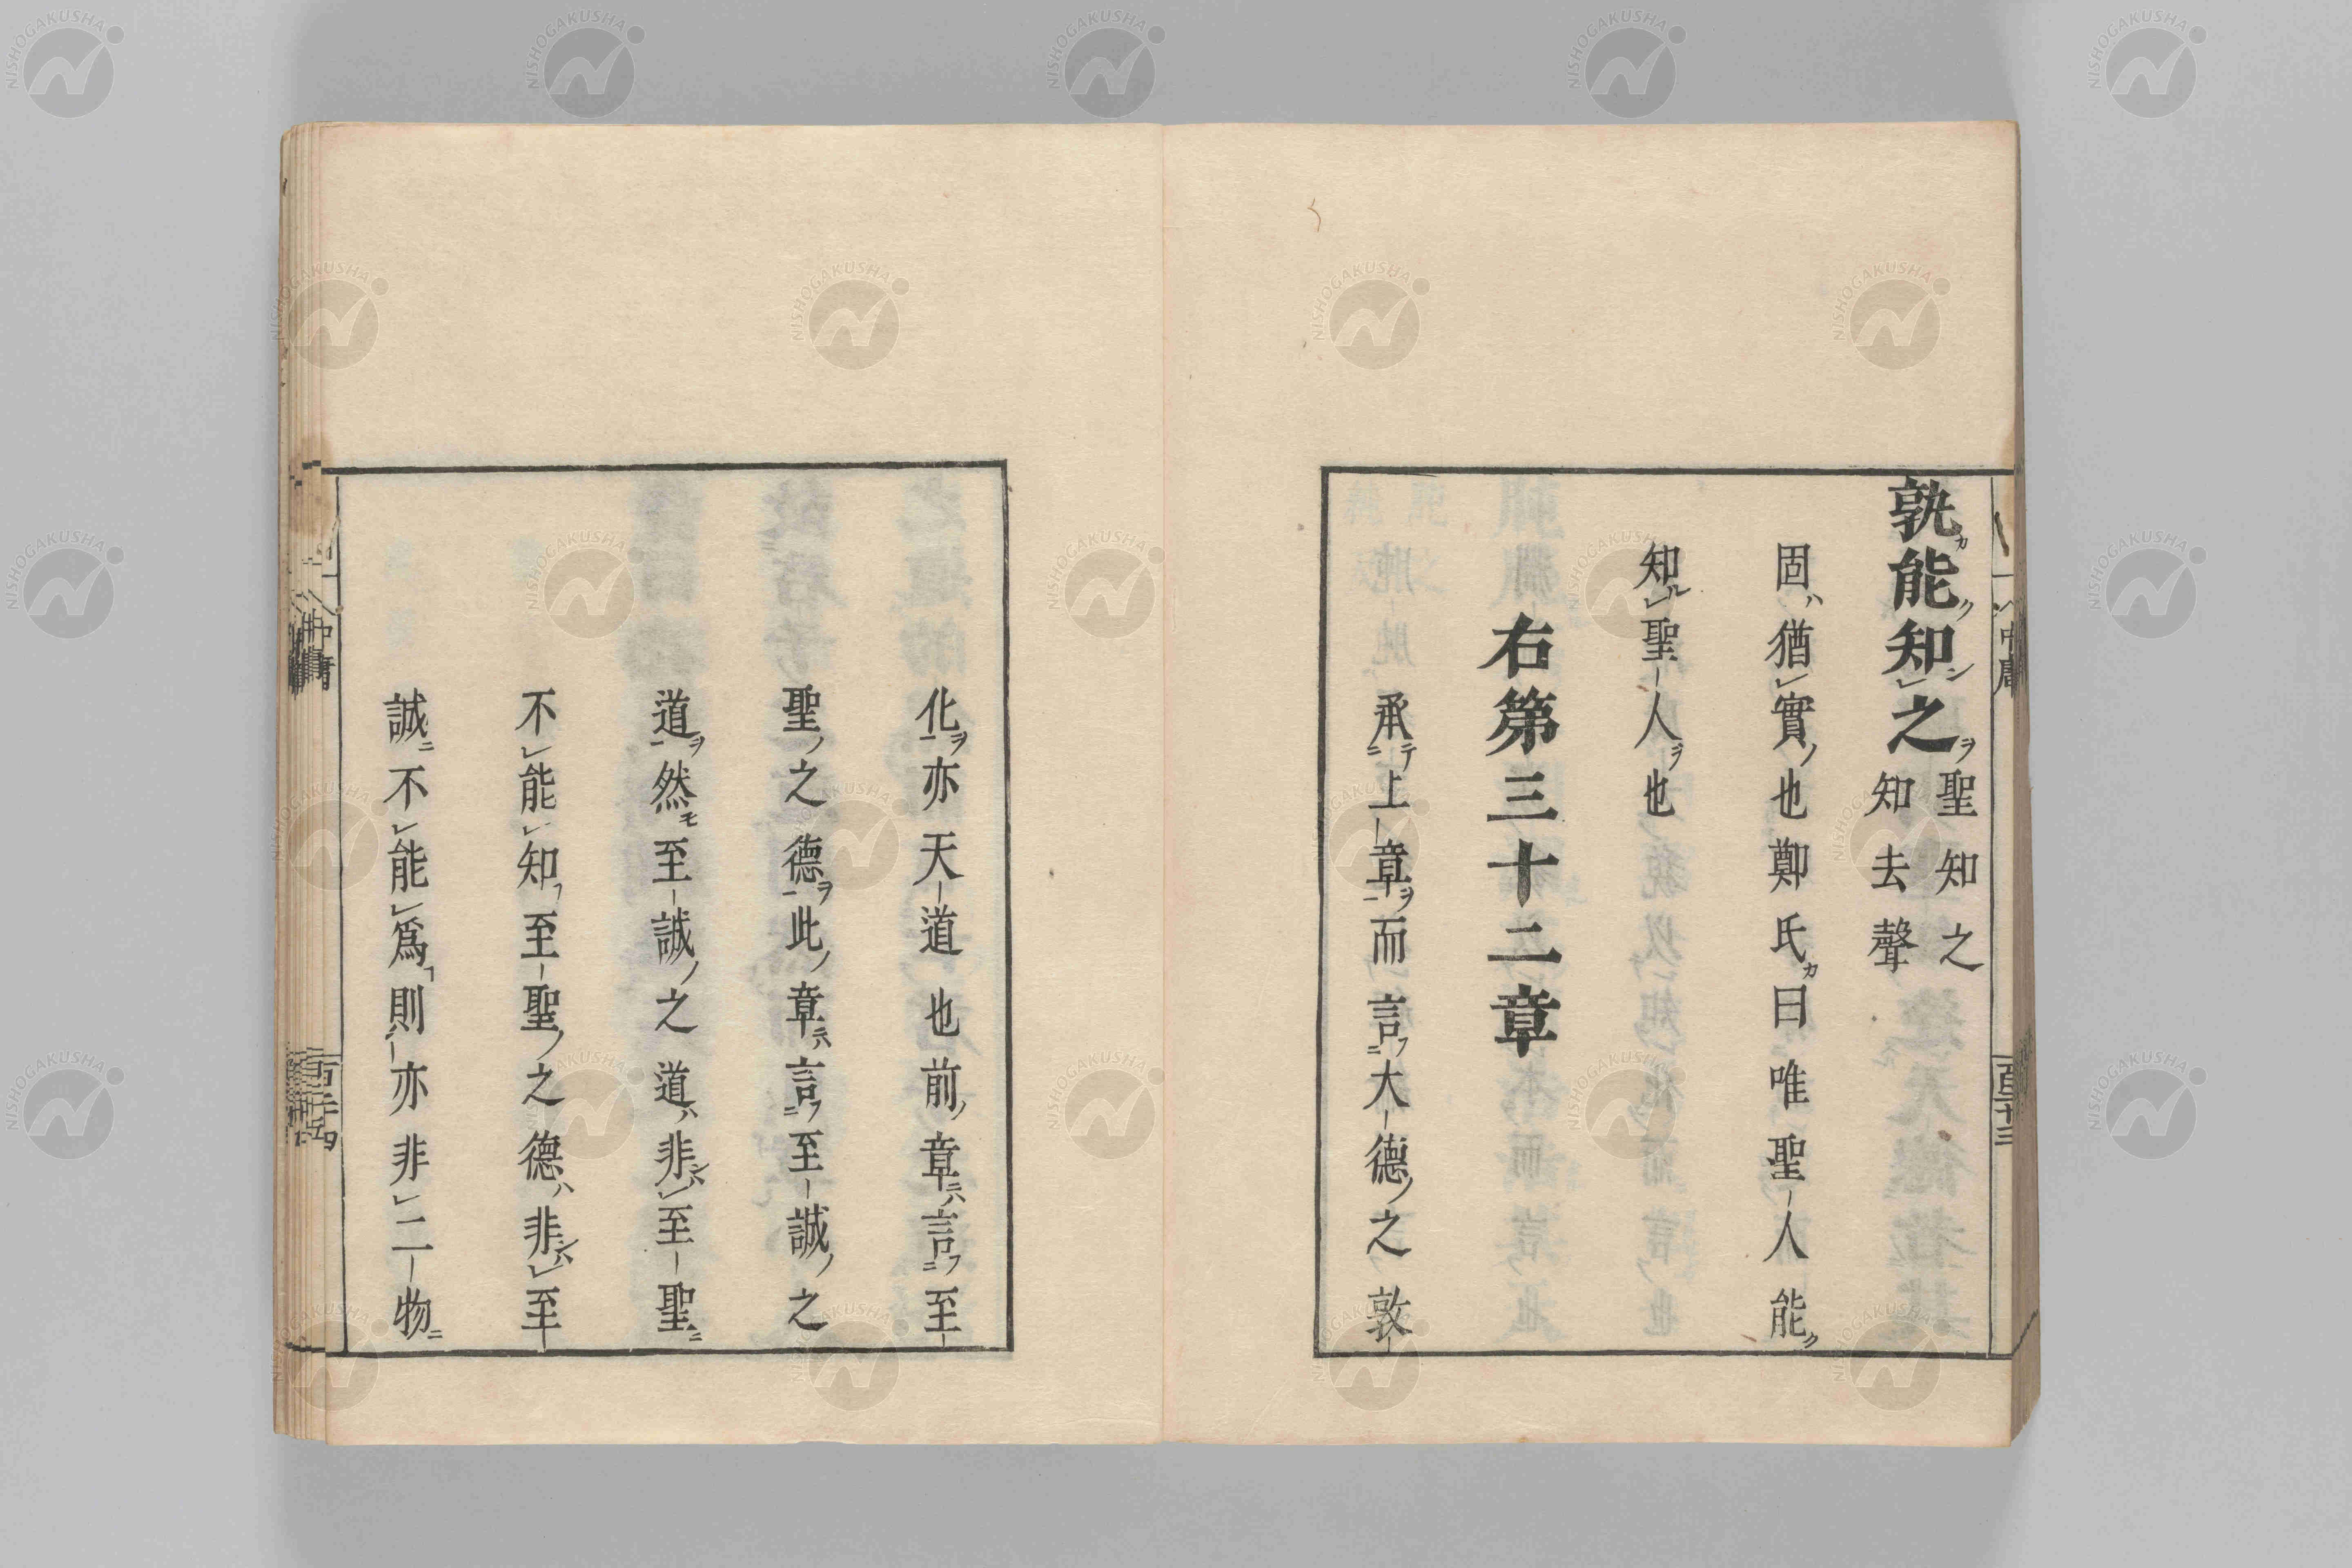 孰ガ能ク知ンレ之ヲ
聖知之
知去聲
固ハ猶レ實ノ也鄭氏カ曰唯聖-人能ク
知ルレ聖-人ヲ也
右第三十二章
承テ二上-章ヲ一而言フ二大-德ノ之敦-
化ヲ一亦天-道也前ノ章ニハ言フ二至-
聖ノ之德ヲ一此ノ章ニハ言フ二至-誠ノ之
道ヲ一然モ至-誠ノ之道ハ非レハレ至-聖ニ
不レ能レ知ヿ至-聖ノ之德ハ非レハレ至-
誠ニ不レ能レ爲ヿ則ハ-亦非レ二-物ニ
中庸
百三十三
中庸
NISHOGAKUSHA